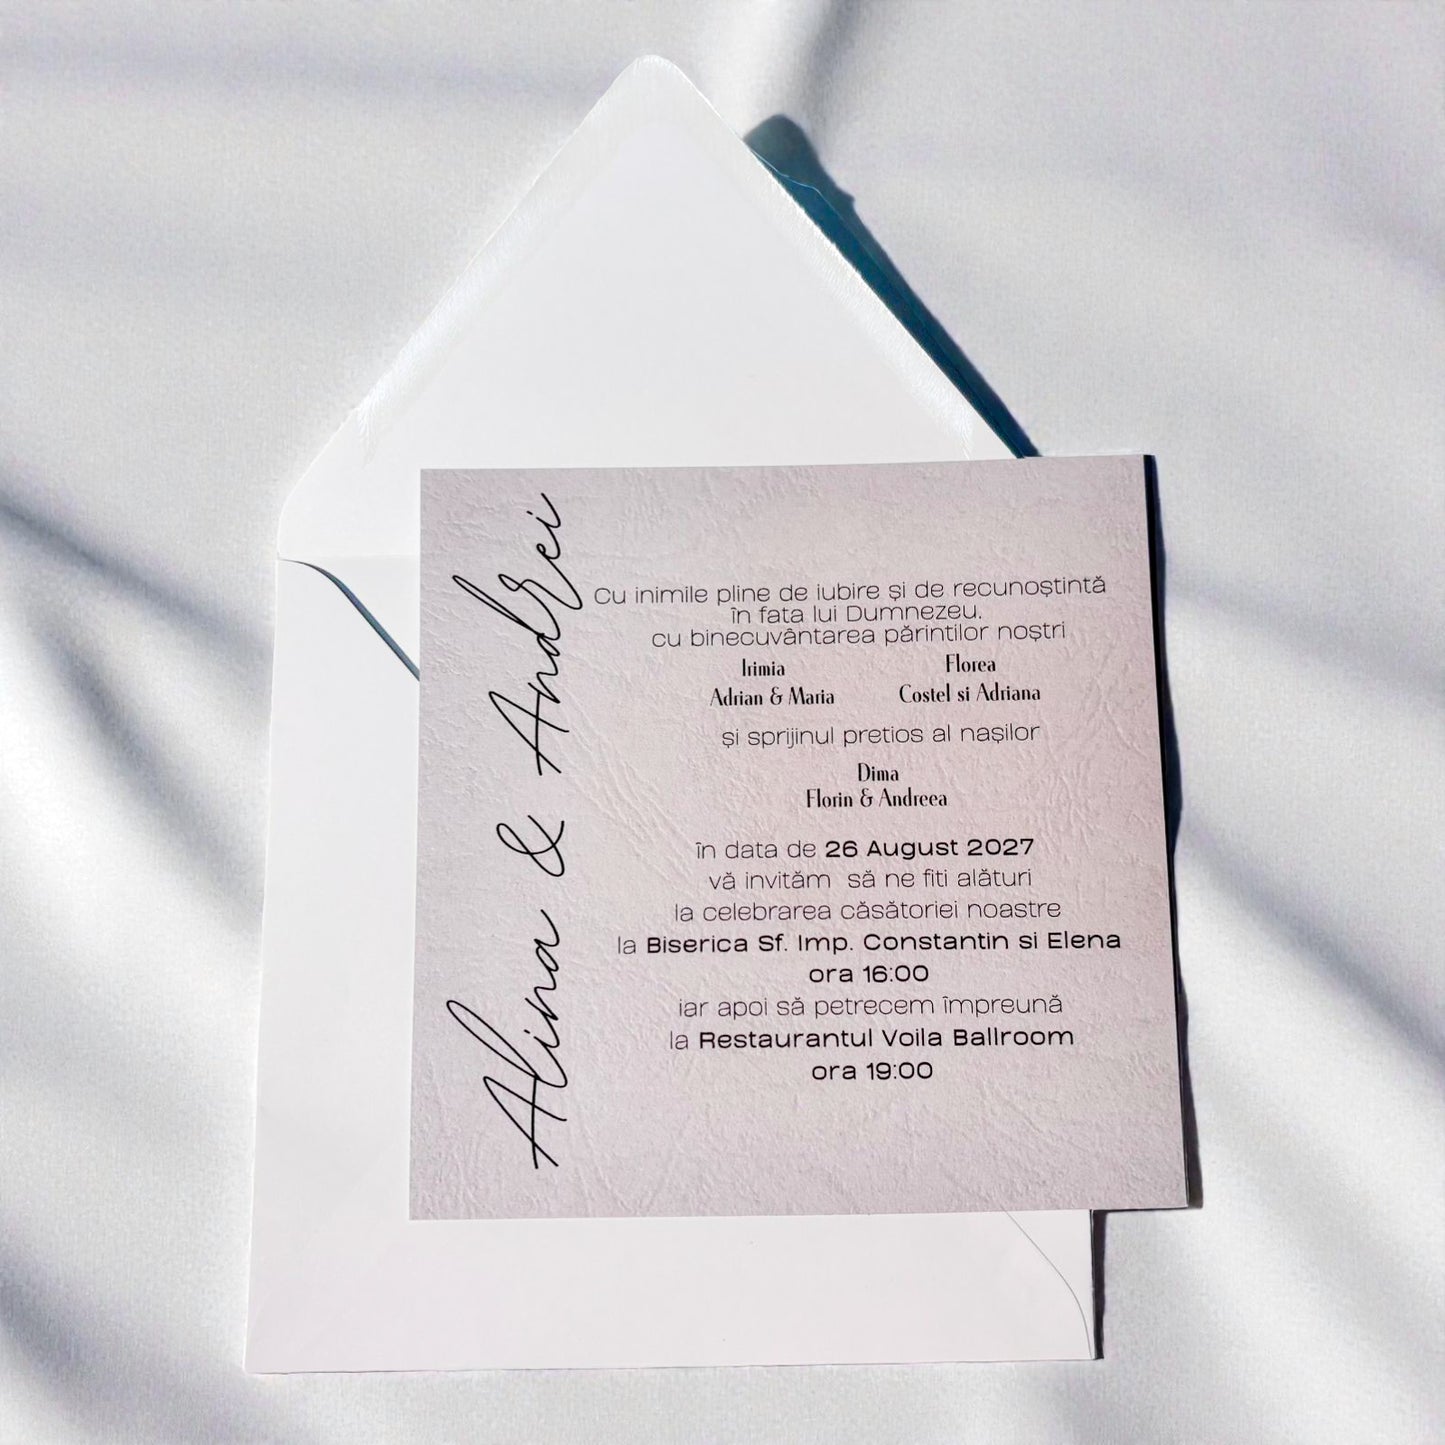 Alina & Andrei
Cu inimile pline de iubire și de recunoștintă
în fata lui Dumnezeu,
cu binecuvântarea părintilor noștri
Irimia
Adrian & Maria
Florea
Costel si Adriana
și sprijinul pretios al nașilor
Dima
Florin & Andreea
în data de 26 August 2027
vă invităm să ne fiti alături
la celebrarea căsătoriei noastre
la Biserica Sf. Imp. Constantin si Elena
ora 16:00
iar apoi să petrecem împreună
la Restaurantul Voila Ballroom
ora 19:00